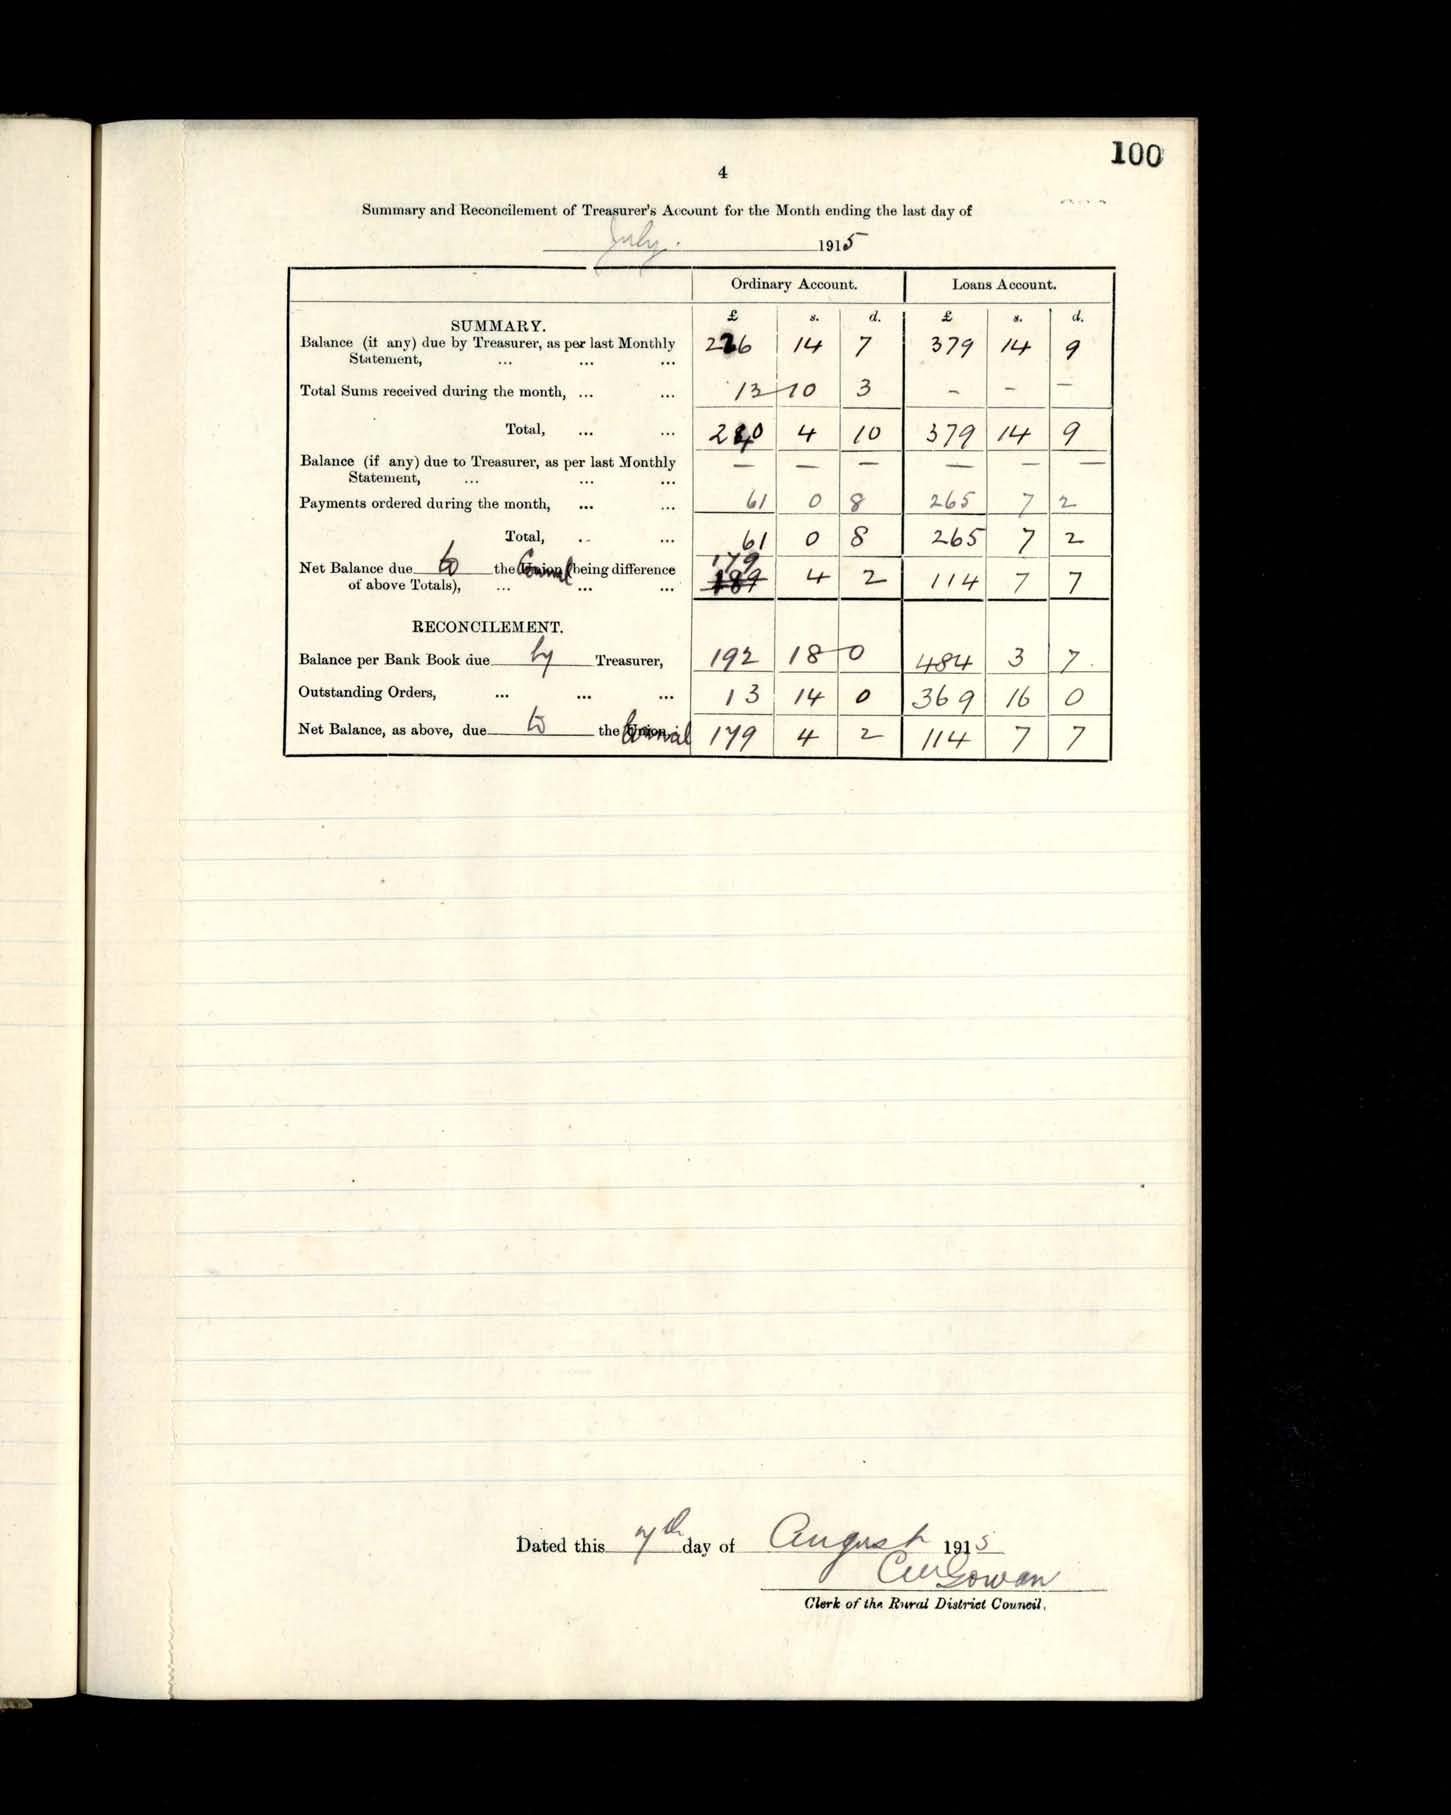 100
4
Summary and Reconcilement of Treasurer's Account for the Month ending the last day of
July. 1915
Ordinary Account. Loans Account.
£ s. d. £ s. d.
SUMMARY.
Balance (if any) due by Treasurer, as per last Monthly 226 14 7 379 14 9
Statement, ... ... ...
Total Sums received during the month, ... ... 13 10 3 - - -
Total, ... ... 240 4 10 379 14 9
Balance (if any) due to Treasurer, as per last Monthly — — — — — —
Statement, ... ... ...
Payments ordered during the month, ... ... 61 0 8 265 7 2
Total, ... ... 61 0 8 265 7 2
179
Net Balance due to the Council being difference 189 4 2 114 7 7
of above Totals), ... ... ...
RECONCILEMENT.
Balance per Bank Book due by Treasurer, 192 18 0 484 3 7.
Outstanding Orders, ... ... ... 13 14 0 369 16 0
Net Balance, as above, due to the Council 179 4 2 114 7 7
Dated this 7th day of August 1915
Gowan
Clerk of the Rural District Council.